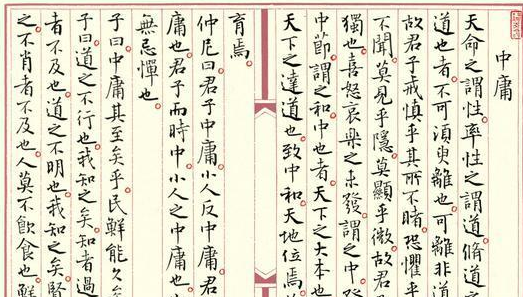 中庸
天命之謂性率性之謂道脩道
道也者不可須臾離也可離非道
故君子戒慎乎其所不睹恐懼乎
不聞莫見乎隱莫顯乎微故君
獨也喜怒哀樂之未發謂之中
中節謂之和中也者天下之大本也
天下之達道也致中和天地位焉
育焉
仲尼曰君子中庸小人反中庸君
庸也君子而時中小人之中庸也
無忌憚也
子曰中庸其至矣乎民鮮能久矣
子曰道之不行也我知之矣知者過
者不及也道之不明也我知之矣賢
之不肖者不及也人莫不飲食也鮮